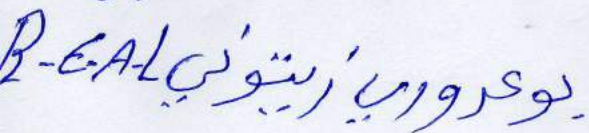 بوعروري زيتوني B.E.A.L